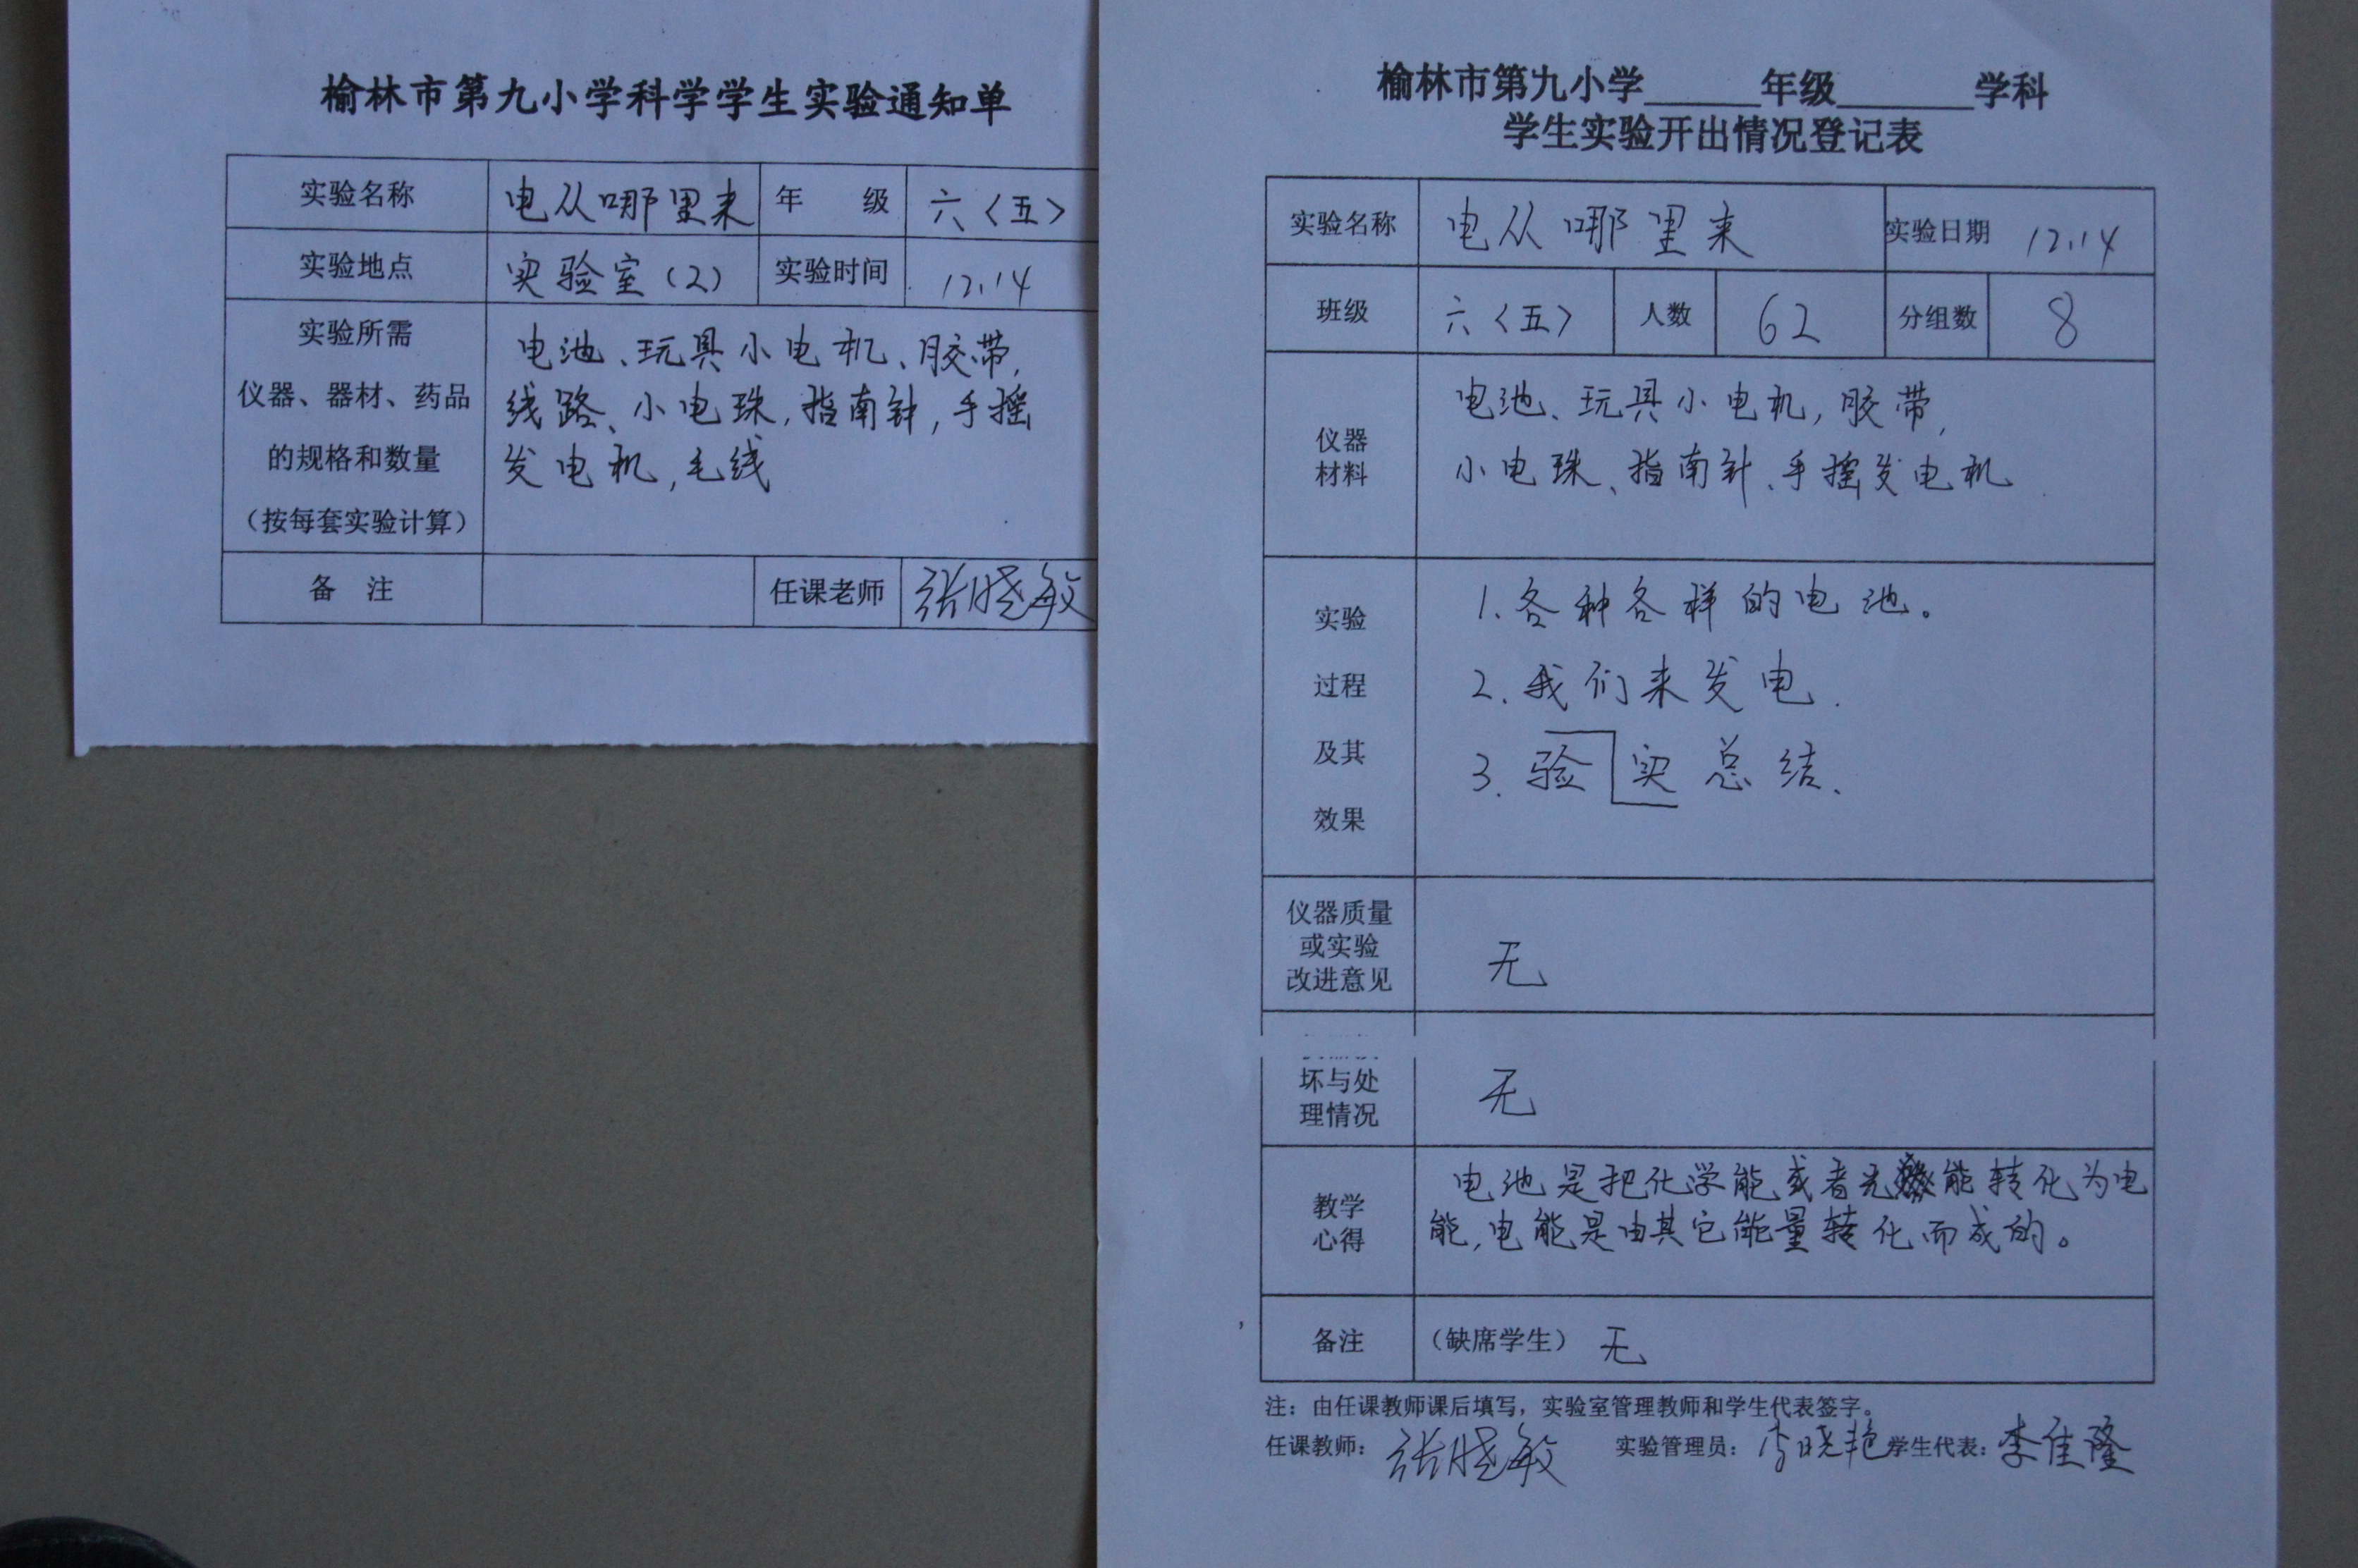 榆林市第九小学科学学生实验通知单
实验名称 电从哪里来 年 级 六〈五〉
实验地点 实验室(2) 实验时间 12.14
实验所需
仪器、器材、药品
的规格和数量
（按每套实验计算）
电池、玩具小电机、胶带,
线路、小电珠,指南针,手摇
发电机,毛线
备 注 任课老师 张晓敏
榆林市第九小学______年级______学科
学生实验开出情况登记表
实验名称 电从哪里来 实验日期 12.14
班级 六〈五〉 人数 62 分组数 8
仪器
材料
电池、玩具小电机,胶带,
小电珠、指南针、手摇发电机
实验
过程
及其
效果
1.各种各样的电池。
2.我们来发电.
3.验实总结.
仪器质量
或实验
改进意见
无
坏与处
理情况
无
教学
心得
电池是把化学能或者光能转化为电
能,电能是由其它能量转化而成的。
备注 （缺席学生） 无
注：由任课教师课后填写，实验室管理教师和学生代表签字。
任课教师： 张晓敏 实验管理员： 李晓艳 学生代表： 李佳隆